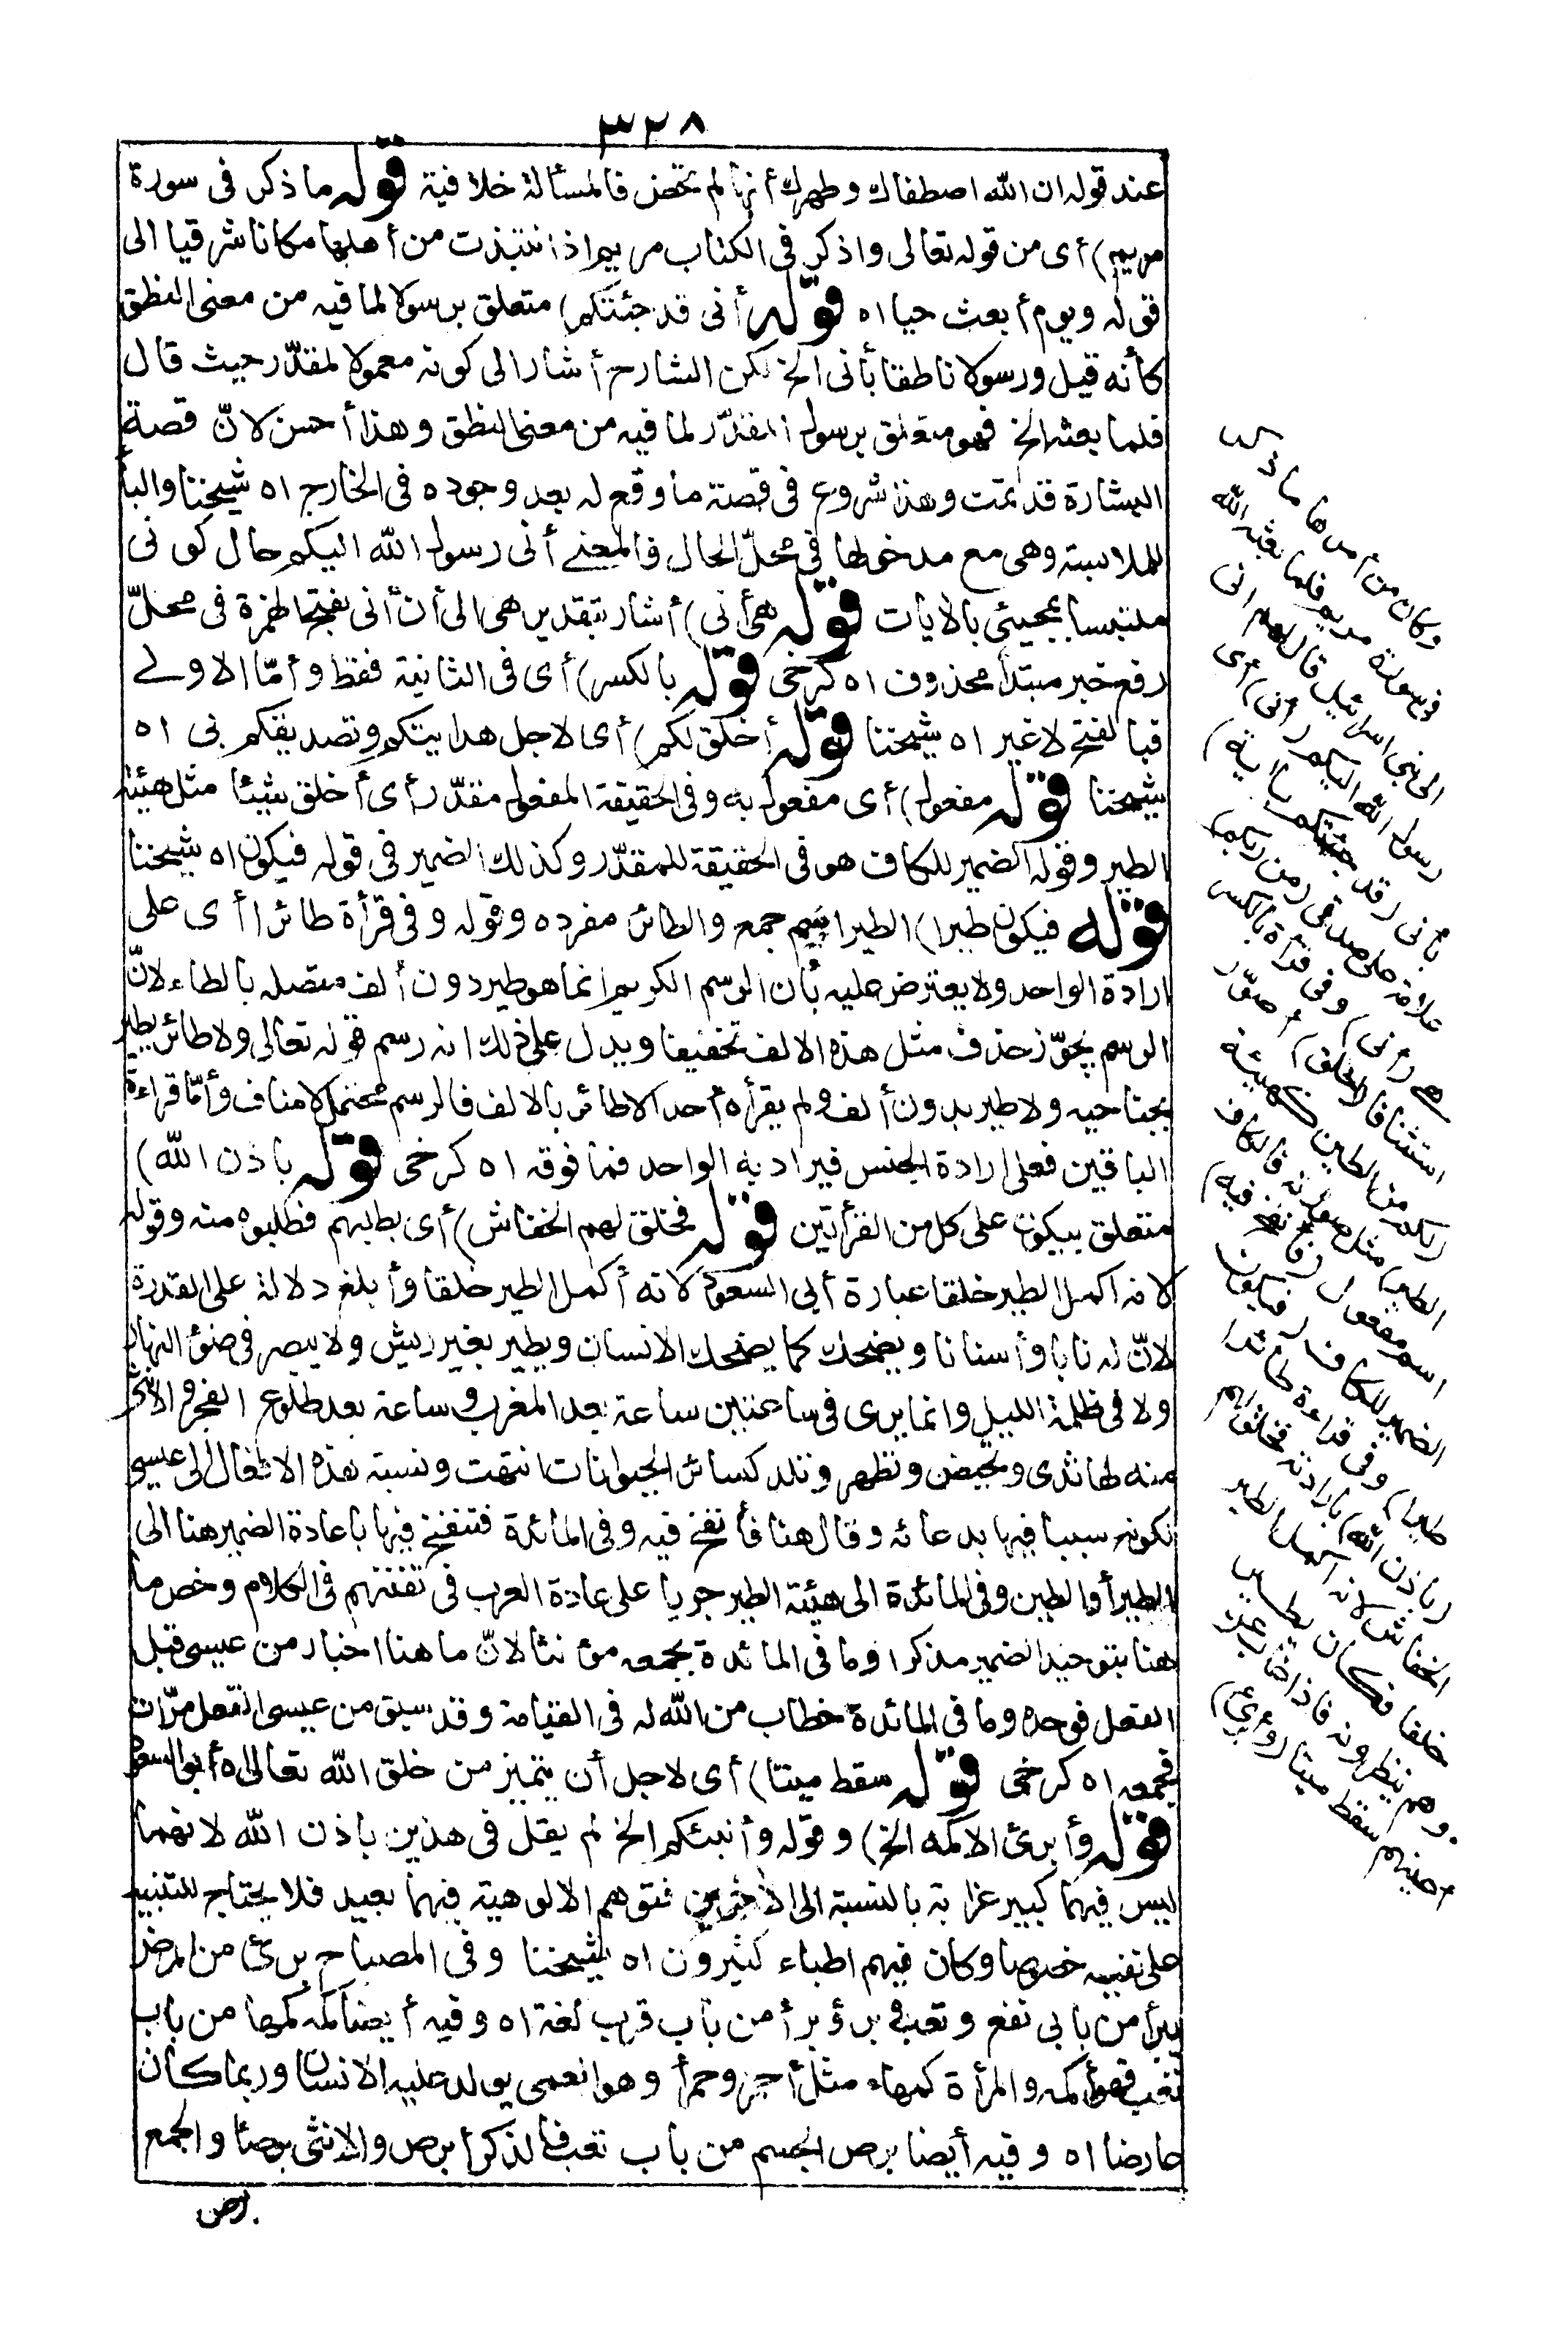 ٣٢٨
عند قوله ان الله اصطفاك وطهرك أنها لم تحض فالمسألة خلافية قوله ما ذكر فى سورة
مريم) أى من قوله تعالى واذكر فى الكتاب مريم اذ انتبذت من أهلها مكانا شرقيا الى
قوله ويوم أبعث حيا اه قوله أنى قد جئتكم) متعلق برسولا لما فيه من معنى النطق
كأنه قيل ورسولا ناطقا بأنى الخ لكن الشارح أشار الى كونه معمولا لمقدّر حيث قال
فلما بعثه الخ فهو متعلق برسول المقدّر لما فيه من معنى النطق وهذا أحسن لانّ قصة
البشارة قد تمت وهذا شروع فى قصة ما وقع له بعد وجوده فى الخارج اه شيخنا والبا
للملابسة وهى مع مدخولها فى محلّ الحال فالمعنى أنى رسول الله اليكم حال كونى
ملتبسا بمجيئى بالآيات قوله هى أنى) أشار بتقدير هى الى أن أنى بفتح الهمزة فى محلّ
رفع خبر مبتدأ محذوف اه كرخى قوله بالكسر) أى فى الثانية فقط وأمّا الاولى
فبالفتح لا غير اه شيخنا قوله أخلق لكم) أى لاجل هدايتكم وتصديقكم بى اه
شيخنا قوله مفعول) أى مفعول به وفى الحقيقة المفعول مقدّر أى أخلق شيئا مثل هيئة
الطير وقوله الضمير للكاف هو فى الحقيقة للمقدّر وكذلك الضمير فى قوله فيكون اه شيخنا
قوله فيكون طيرا) الطير اسم جمع والطائر مفرده وقوله وفى قرأة طائرا أى على
ارادة الواحد ولا يعترض عليه بأن الرسم الكريم انما هو طير دون ألف متصله بالطاء لانّ
الرسم يجوّز حذف مثل هذه الالف تخفيفا ويدل على ذلك انه رسم قوله تعالى ولا طائر يطير
بجناحيه ولا طير بدون ألف ولم يقرأه أحد الا طائر بالالف فالرسم محتمل لا مناف وأمّا قراءة
الباقين فعلى ارادة الجنس فيراد به الواحد فما فوقه اه كرخى قوله باذن الله)
متعلق بيكون على كل من القرأتين قوله فخلق لهم الخفاش) أى بطلبهم فطلبوه منه وقوله
لانه اكمل الطير خلقا عبارة أبى السعود لانه أكمل الطير خلقا وأبلغ دلالة على القدرة
لانّ له نابا وأسنانا ويضحك كما يضحك الانسان ويطير بغير ريش ولا يبصر فى ضوء النهار
ولا فى ظلمة الليل وانما يرى فى ساعتين ساعة بعد المغرب وساعة بعد طلوع الفجر والانثى
منه لها ثدى وتحيض وتطهر وتلد كسائر الحيوانات انتهت ونسبة هذه الافعال الى عيسى
لكونه سببا فيها بدعائه وقال هنا فأنفخ فيه وفى المائدة فتنفخ فيها باعادة الضمير هنا الى
الطير أو الطين وفى المائدة الى هيئة الطير جريا على عادة العرب فى تفننهم فى الكلام وخص ما
هنا بتوحيد الضمير مذكرا وما فى المائدة بجمعه مؤنثا لانّ ما هنا اخبار من عيسى قبل
الفعل فوحده وما فى المائدة خطاب من الله له فى القيامة وقد سبق من عيسى الفعل مرّات
فجمعه اه كرخى قوله سقط ميتا) أى لاجل أن يتميز من خلق الله تعالى اه أبو السعود
قوله وأبرئ الاكمه الخ) وقوله وأنبئكم الخ لم يقل فى هذين باذن الله لانهما
ليس فيهما كبير غرابة بالنسبة الى الأخيرين فتوهم الالوهية فيهما بعيد فلا يحتاج للتنبيه
على نفيه خصوصا وكان فيهم اطباء كثيرون اه شيخنا وفى المصباح برئ من المرض
يبرأ من بابى نفع وتعب وبرؤ برأ من باب قرب لغة اه وفيه أيضا كمه كمها من باب
تعب فهو أكمه والمرأة كمهاء مثل أحمر وحمرأ وهو العمى يولد عليه الانسان وربما كان
عارضا اه وفيه أيضا برص الجسم من باب تعب فالذكر أبرص والانثى برصا والجمع
برص
وكان من أمرها ما ذكر
فى سورة مريم فلما بعثه الله
الى بنى اسرائيل قال لهم انى
رسول الله اليكم (أنى) أى
بأنى (قد جئتكم بآية)
علامة على صدقى (من ربكم)
هى (أنى) وفى قرأة بالكسر
استئنافا (أخلق) أصوّر
(لكم من الطين كهيئة
الطير) مثل صورته فالكاف
اسم مفعول (فأنفخ فيه)
الضمير للكاف (فيكون
طيرا) وفى قراءة طائرا
(باذن الله) بارادته فخلق لهم
الخفاش لانه اكمل الطير
خلقا فكان يطير
وهم ينظرونه فاذا غاب عن
أعينهم سقط ميتا (وأبرئ)